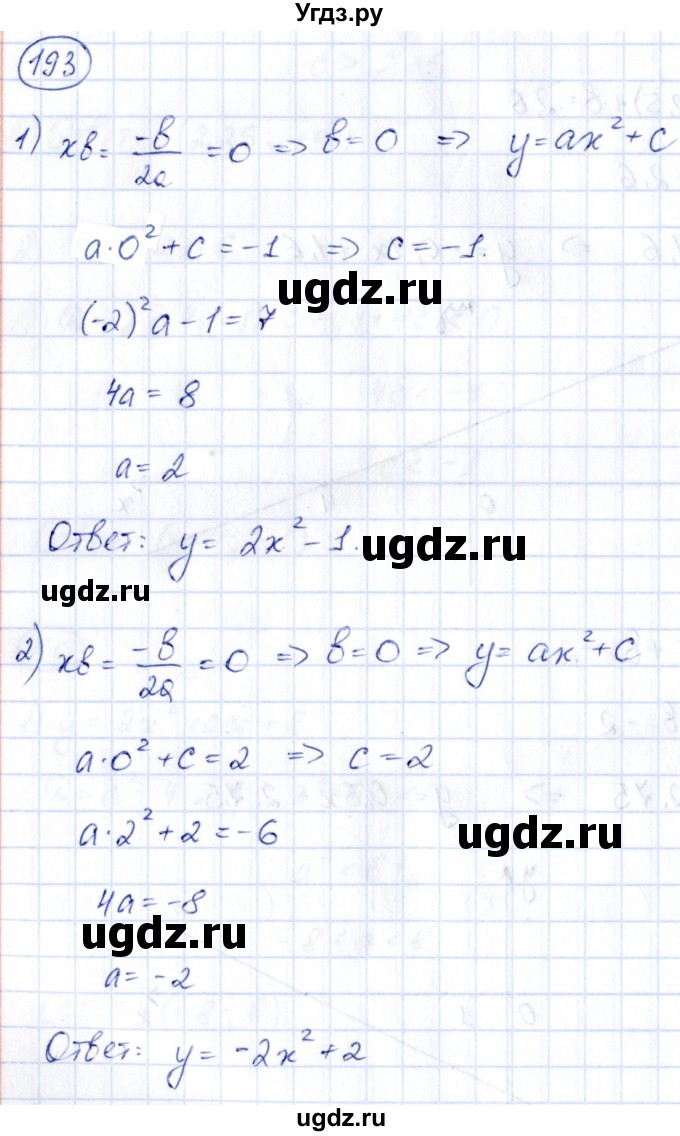 Угдз.ру
193
1) xв = -в/2a = 0 => в = 0 => y = ax² + c
a·0² + c = -1 => c = -1.
ugdz.ru
(-2)²a - 1 = 7
4a = 8
a = 2
Ответ: y = 2x² - 1.
ugdz.ru
ugdz.ru
2) xв = -в/2a = 0 => в = 0 => y = ax² + c
a·0² + c = 2 => c = 2
a·2² + 2 = -6
ugdz.ru
4a = -8
ugdz.ru
a = -2
Ответ: y = -2x² + 2
ugdz.ru